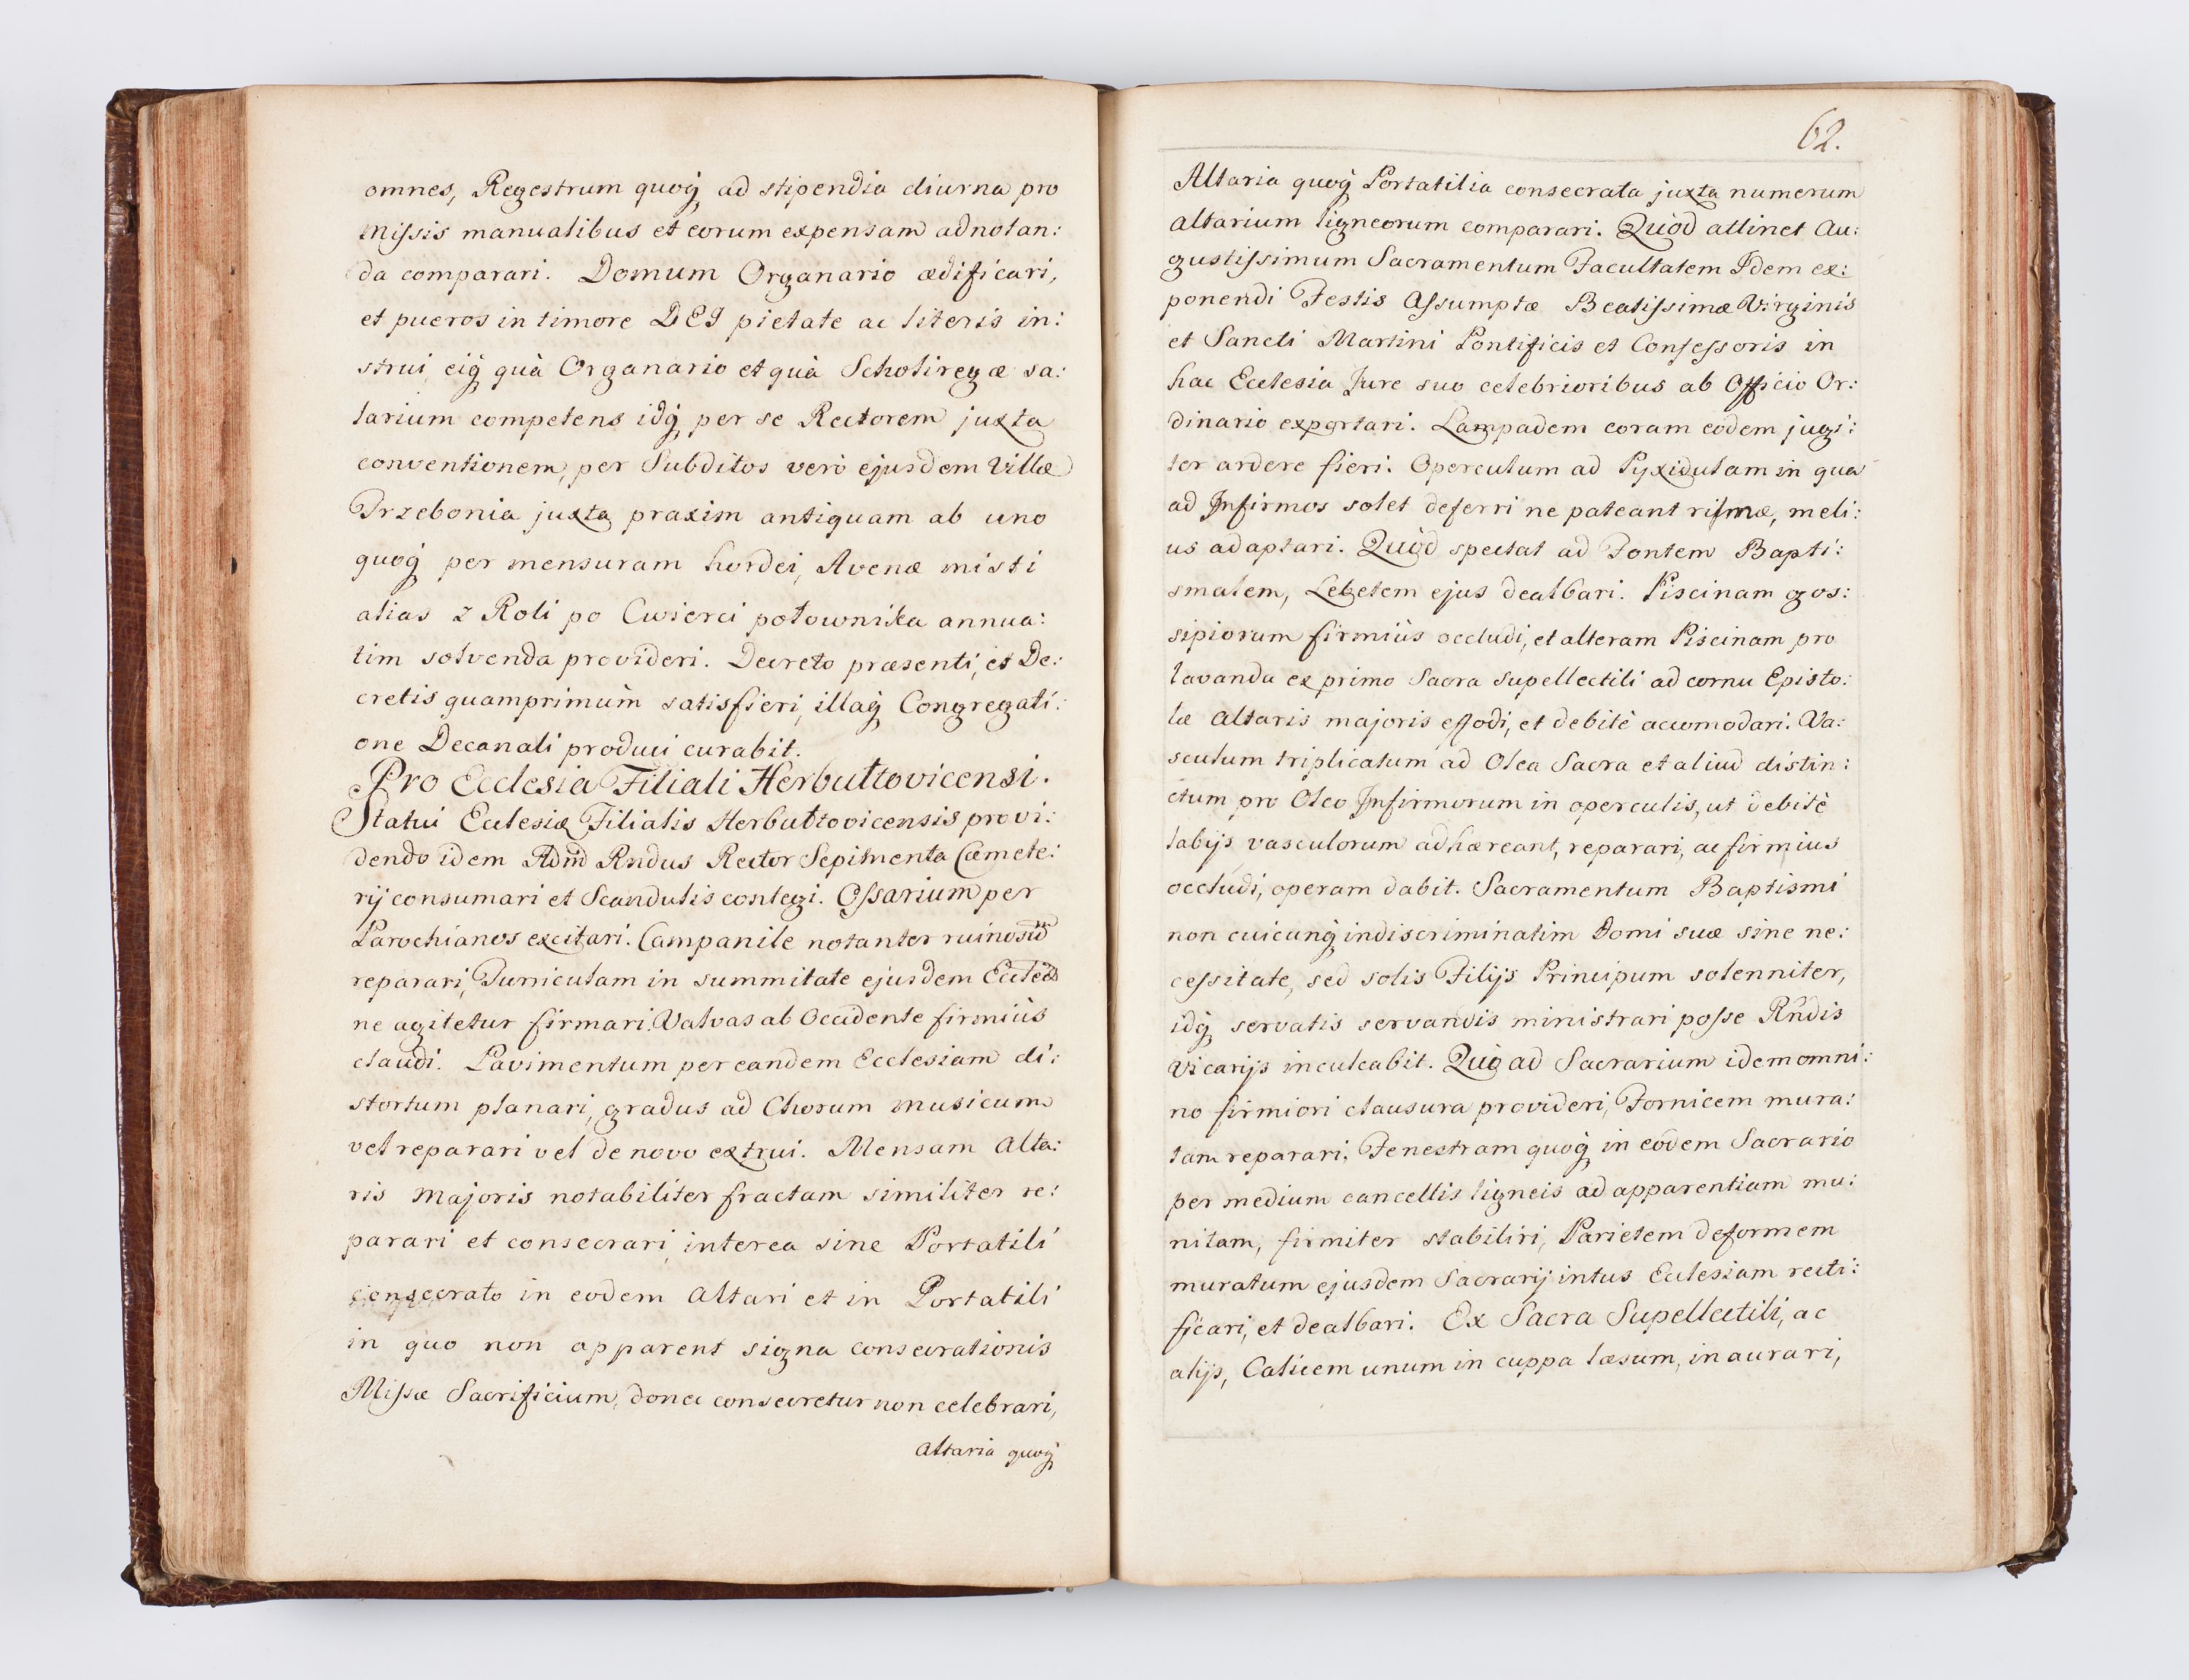 omnes, Regestrum quoq; ad stipendia diurna pro
Missis manualibus et eorum expensam adnotan:
da comparari. Domum Organario ædificari,
et pueros in timore DEI pietate ac literis in:
strui eiq; quà Organario et quà Scholiregæ sa:
larium competens idq; per se Rectorem juxta
conventionem, per Subditos verò ejusdem Villæ
Trzebonia juxta praxim antiquam ab uno
quoq; per mensuram hordei, Avenæ misti
alias z Roli po Cwierci połownika annua:
tim solvenda provideri. Decreto præsenti, et De:
cretis quamprimùm satisfieri, illaq; Congregati:
one Decanali produci curabit.
Pro Ecclesia Filiali Herbułtovicensi.
Statui Ecclesiæ Filialis Herbułtovicensis provi:
dendo idem Admd Rndus Rector Sepimenta Cæmete:
rij consumari et Scandulis contegi. Ossarium per
Parochianos excitari. Campanile notanter ruinosũ
reparari, Turriculam in summitate ejusdem Eccleæ
ne agitetur firmari. Valvas ab Occidente firmiùs
claudi. Pavimentum per eandem Ecclesiam di:
stortum planari, gradus ad Chorum musicum
vel reparari vel de novo extrui. Mensam Alta:
ris Majoris notabiliter fractam similiter re:
parari et consecrari, interea sine Portatili
consecrato in eodem Altari et in Portatili
in quo non apparent signa consecrationis
Missæ Sacrificium, donec consecretur non celebrari,
Altaria quoq;
62.
Altaria quoq; Portatilia consecrata juxta numerum
Altarium ligneorum comparari. Quòd attinet Au:
gustissimum Sacramentum Facultatem Idem ex:
ponendi Festis Assumptæ Beatissimæ Virginis
et Sancti Martini Pontificis et Confessoris in
hac Ecclesia Jure suo celebrioribus ab Officio Or:
dinario exportari. Lampadem coram eodem jugi:
ter ardere fieri. Operculum ad Pyxidulam in qua
ad Infirmos solet deferri ne pateant rismæ, meli:
us adaptari. Quòd spectat ad Fontem Bapti:
smalem, Lebetem ejus dealbari. Piscinam gos:
sipiorum firmiùs occludi, et alteram Piscinam pro
lavanda ex primo Sacra Supellectili ad cornu Episto:
læ Altaris majoris effodi, et debitè accomodari. Va:
sculum triplicatum ad Olea Sacra et aliud distin:
ctum pro Oleo Infirmorum in operculis, ut debitè
labijs vasculorum adhæreant, reparari, ac firmius
occludi, operam dabit. Sacramentum Baptismi
non cuicunq; indiscriminatim Domi suæ sine ne:
cessitate, sed solis Filijs Principum solenniter,
idq; servatis servandis ministrari posse Rñdis
Vicarijs inculcabit. Quo ad Sacrarium idem omni:
no firmiori clausura provideri, Fornicem mura:
tam reparari. Fenestram quoq; in eodem Sacrario
per medium cancellis ligneis ad apparentiam mu:
nitam, firmiter stabiliri, Parietem deformem
muratum ejusdem Sacrarij intus Ecclesiam recti:
ficari, et dealbari. Ex Sacra Supellectili, ac
alijs, Calicem unum in cuppa læsum, inaurari,